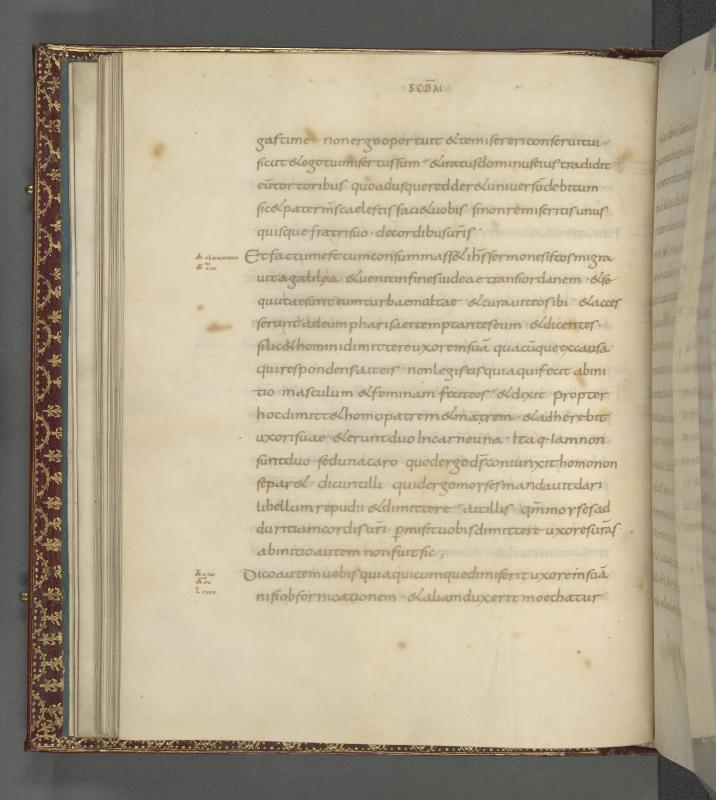 SCDM
gasti me · non ergo oportuit & te misereri conserui tui ·
sicut & ego tui misertus sum · & iratus dominus eius tradidit
eū tortoribus quoadusque redder& uniuersū debitum
sic & pater m̄s caelestis faci& uobis si non remiseritis unus
quisque fratri suo de cordibus uris
Et factum est cum consummass& ih̄s sermones istos migra
uit a galilea & uenit in fines iudeae trans iordanem · & se
quutae sunt eum turbae multae & curauit eos ibi & acces
serunt ad eum pharisaei temptantes eum & dicentes ·
si lic& homini dimittere uxorem suā quacūque ex causa ·
qui respondens ait eis non legistis quia qui fecit ab ini
tio masculum & feminam fecit eos & dixit propter
hoc dimitt& homo patrem & matrem & adherebit
uxori suae & erunt duo in carne una · Itaq· iam non
sunt duo sed una caro quod ergo d̄s coniunxit homo non
separ& dicunt illi quid ergo moyses mandauit dari
libellum repudii & dimittere ait illis qm̄ moyses ad
duritiam cordis uri permisit uobis dimittere uxores urās
ab initio autem non fuit sic
Dico autem uobis quia quicumque dimiserit uxorem suā
nisi ob fornicationem & aliam duxerit moechatur